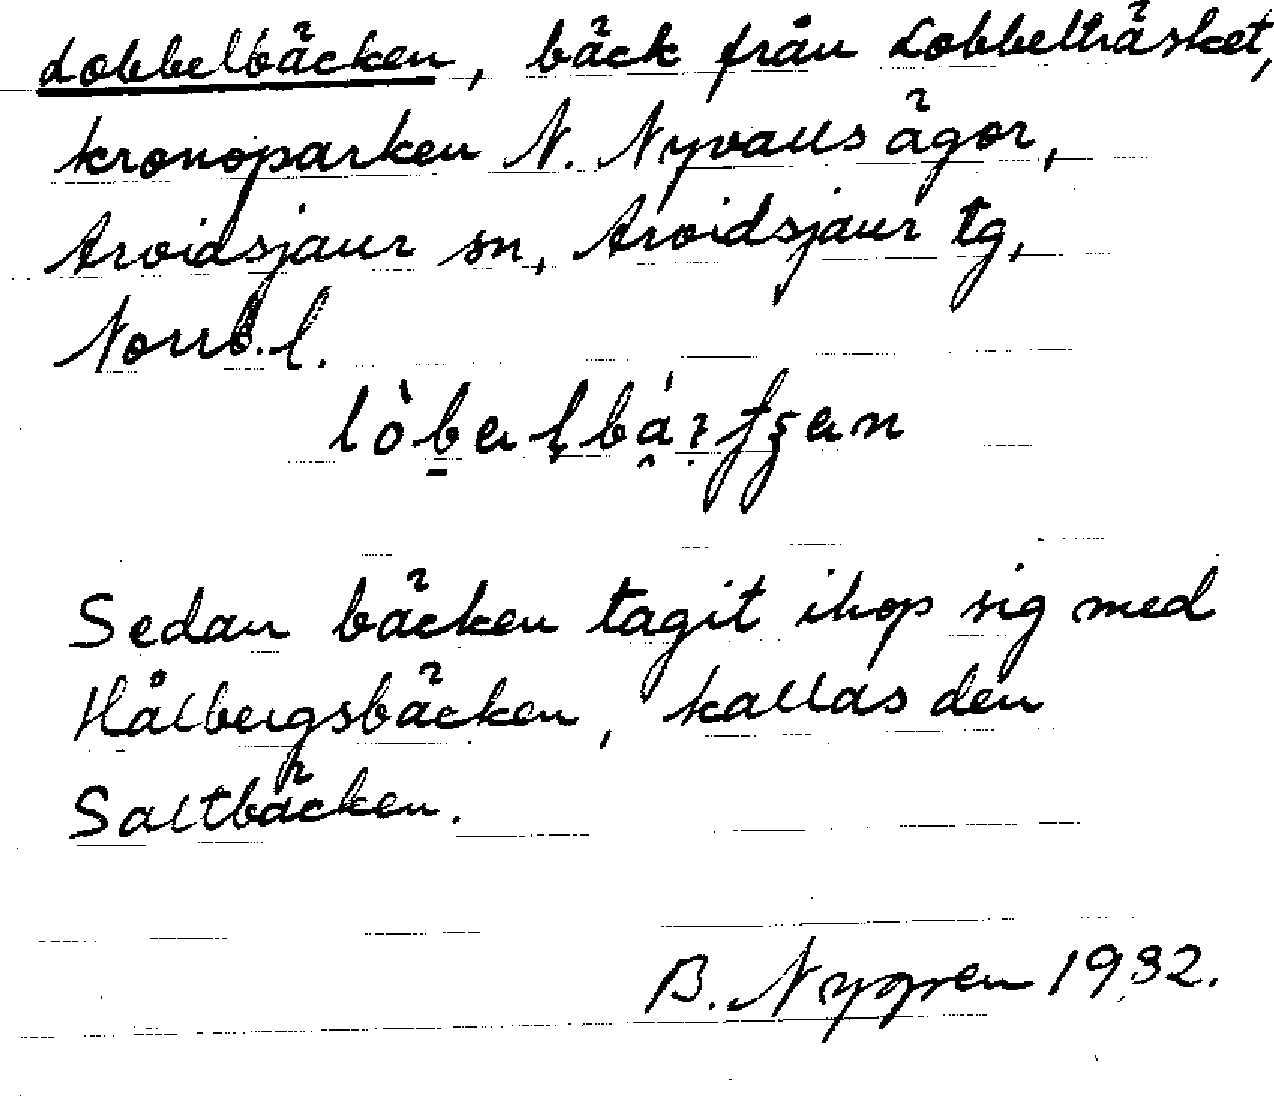 Lobbelbäcken, bäck från Lobbelträsket,
kronoparken N. Nyvalls ägor,
Arvidsjaur sn, Arvidsjaur tg,
Norrb. l.
Sedan bäcken tagit ihop sig med
Hålbergsbäcken, kallas den
Saltbäcken.
B. Nygren 1932.